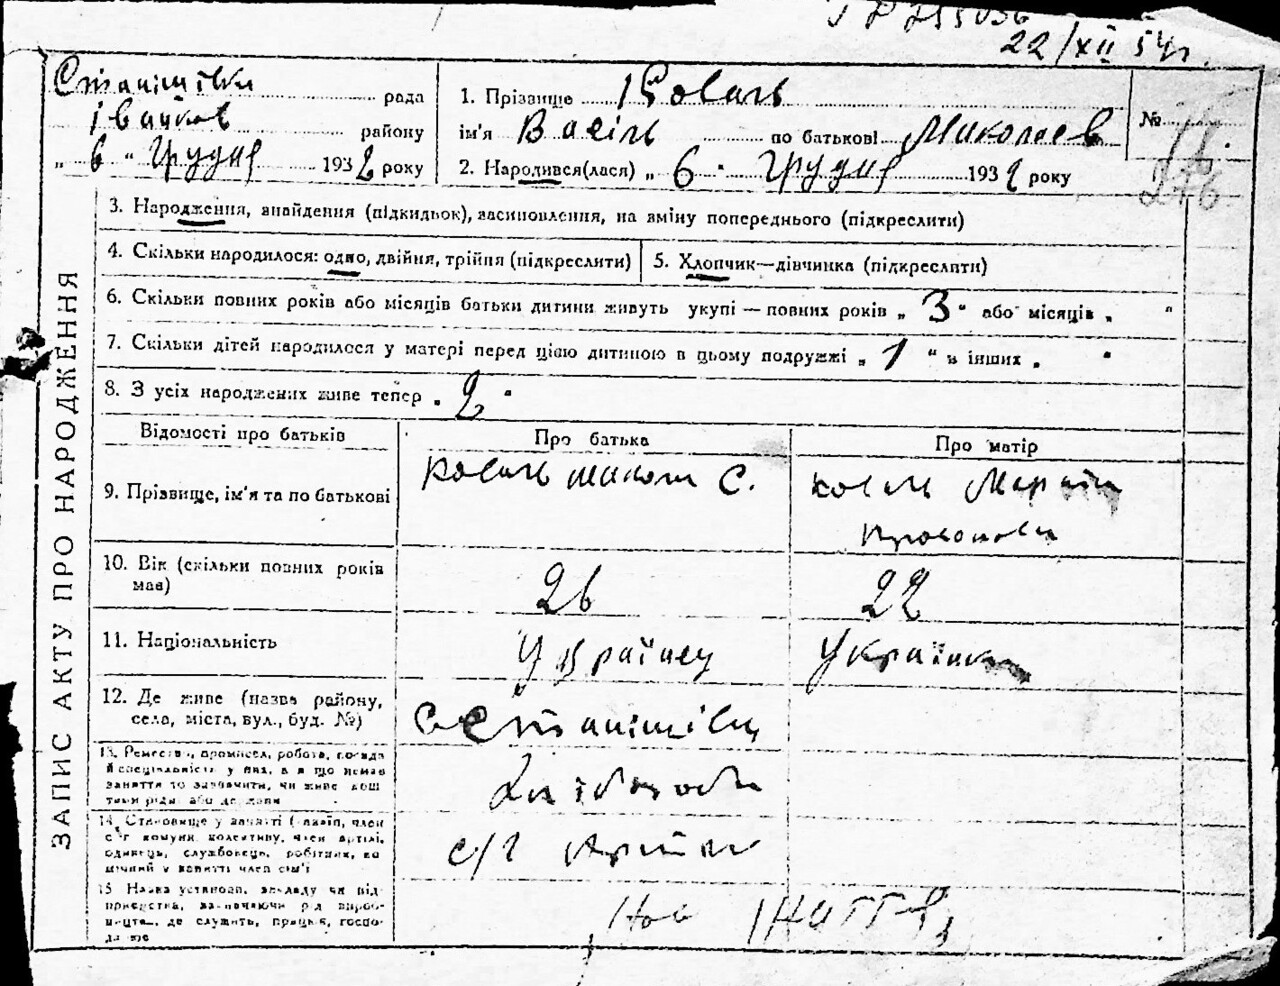 22/XII 54 г.
Станішівка рада
Іванков району
„ 6 " Грудня 1932 року
1. Прізвище Коваль
ім'я Васіль по батькові Миколаев
2. Народився(лася) „ 6 " Грудня 1932 року
№ 16
276
ЗАПИС АКТУ ПРО НАРОДЖЕННЯ
3. Народження, знайдення (підкидьок), засиновлення, на зміну попереднього (підкреслити)
4. Скільки народилося: одно, двійня, трійня (підкреслити)
5. Хлопчик—дівчинка (підкреслити)
6. Скільки повних років або місяців батьки дитини живуть укупі — повних років „ 3 " або місяців „ "
7. Скільки дітей народилося у матері перед цією дитиною в цьому подружжі „ 1 " в інших „ "
8. З усіх народжених живе тепер „ 2 "
Відомості про батьків
Про батька
Про матір
9. Прізвище, ім'я та по батькові
Коваль Микола С.
Коваль Марія
10. Вік (скільки повних років має)
26
22
11. Національність
Українец
Українка
12. Де живе (назва району,
села, міста, вул., буд. №)
с Станішівц
13. Ремество, промисел, робота, посада
й спеціальність у них, а я що немає
заняття то зазначити, чи живе кош
тами рідні або держави
Хліборобы
14. Становище у занятті (хазяїн, член
с-г комуни колективу, член артілі,
одинець, службовець, робітник, по
мічний у занятті член сім'ї
с/г Артіли
15 Назва установи, закладу чи під
приємства, зазначаючи рід вироб-
ництва, де служить, працює, госпо-
дарює